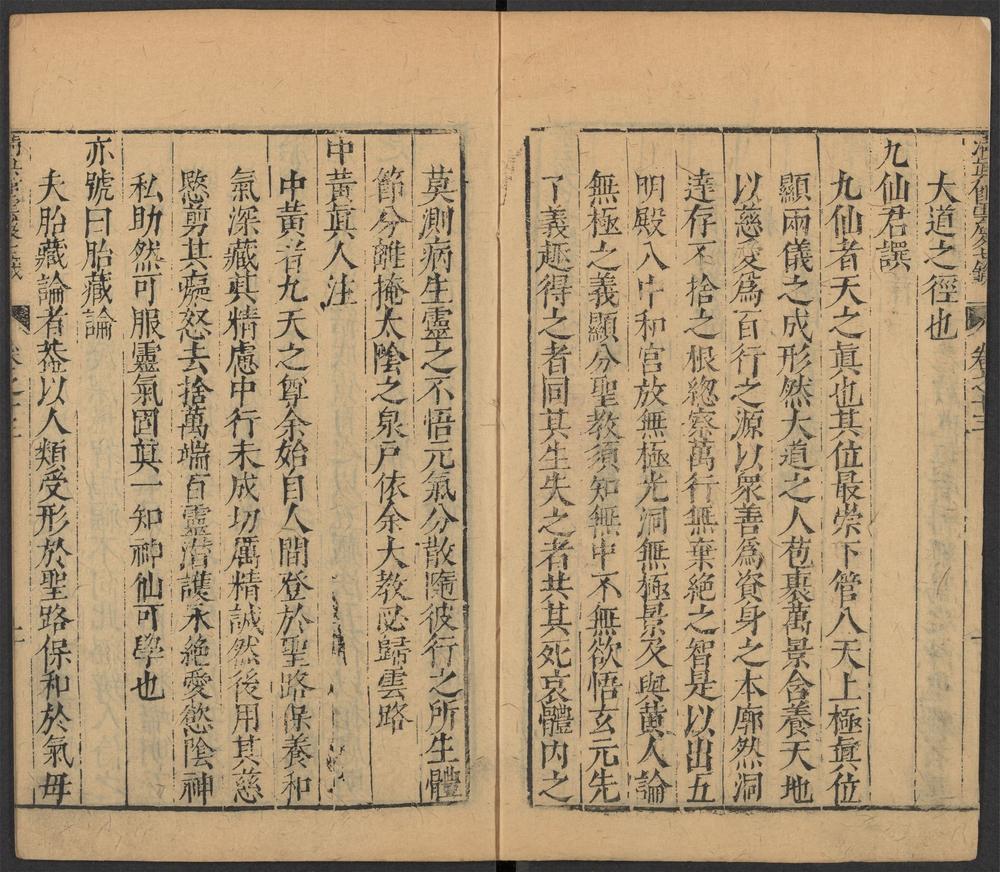 大道之徑也
九仙君譔
九仙者天之眞也其位最崇下管八天上極眞位
顯兩儀之成形然大道之人苞裹萬景含養天地
以慈愛爲百行之源以衆善爲資身之本廓然洞
達存不捨之根緫察萬行無棄絶之智是以出五
明殿入中和宮放無極光洞無極景及與黃人論
無極之義顯分聖教須知無中不無欲悟玄元先
了義趣得之者同其生失之者共其死哀體内之
莫測病生靈之不悟元氣分散隨彼行之所生體
節分離掩太陰之泉戸依余大教必歸雲路
中黃眞人注
中黃者九天之尊余始自人間登於聖路保養和
氣深藏其精慮中行未成切厲精誠然後用其慈
愍剪其癡怒去捨萬端百靈潛護永絶愛慾陰神
私助然可服靈氣固眞一知神仙可學也
亦號曰胎藏論
夫胎藏論者葢以人類受形於聖路保和於氣母